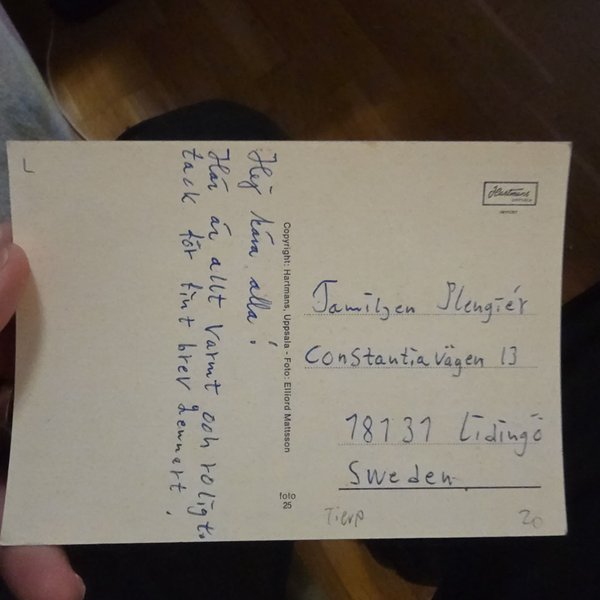 L
Hej kära alla!
Här är allt varmt och roligt.
tack för fint brev Lennart.
Copyright: Hartmans, Uppsala - Foto: Elliord Mattsson
foto
25
Hartmans
UPPSALA
Familjen Slengiér
Constantiavägen 13
18131 Lidingö
Sweden.
Tierp
20